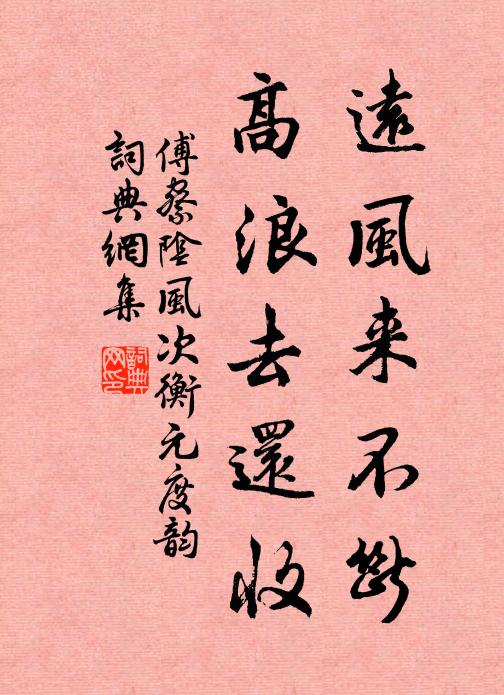 遠風来不斷
高浪去還收
傅察陰風次衡元度韵
詞典網集
詞典網印